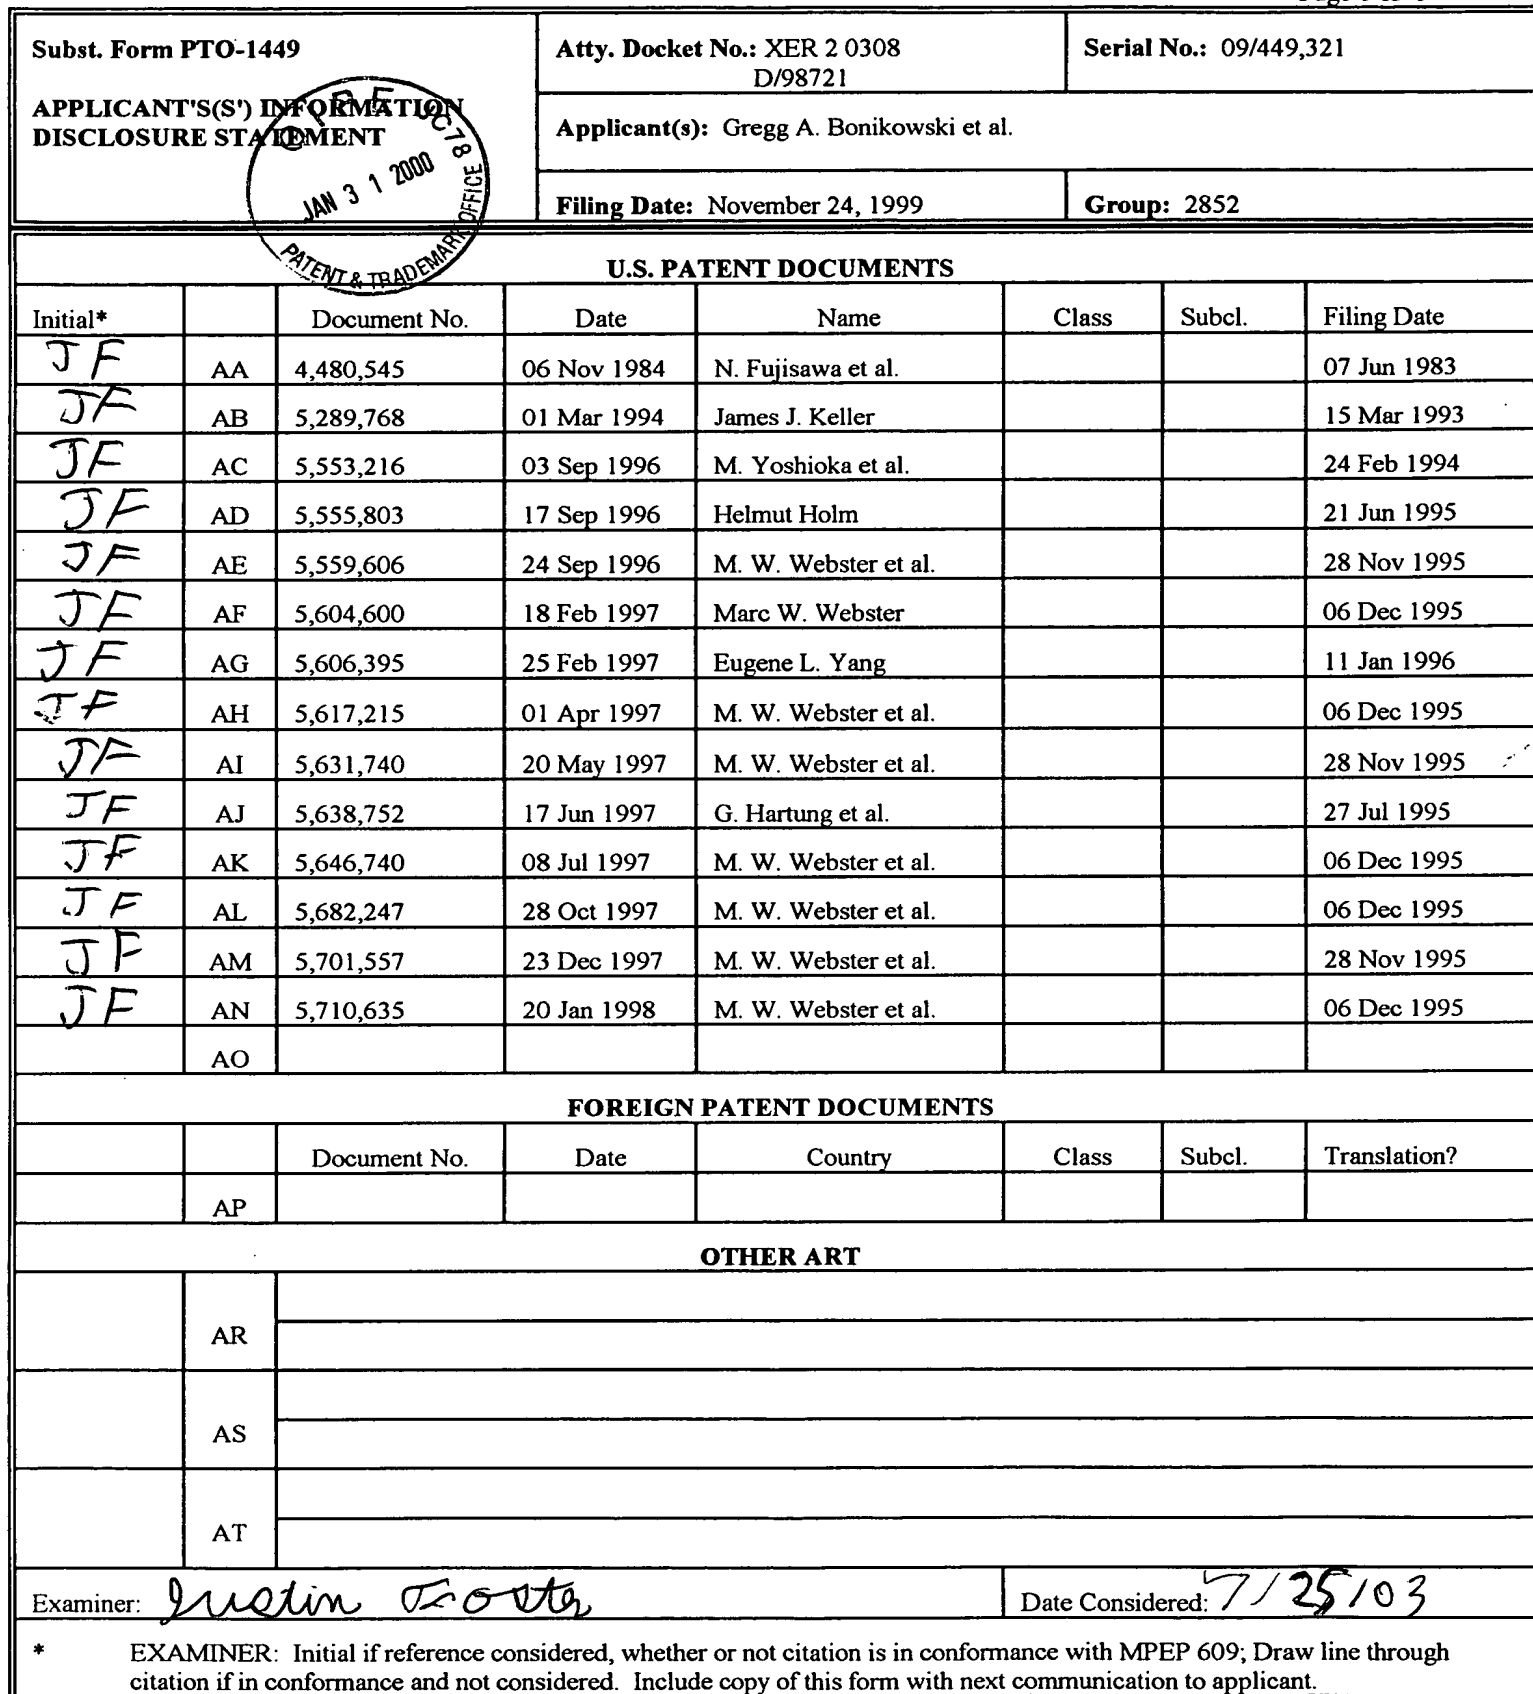 Subst. Form PTO-1449
APPLICANT'S(S') INFORMATION
DISCLOSURE STATEMENT
JAN 3 1 2000
PATENT & TRADEMARK OFFICE
Atty. Docket No.: XER 2 0308
D/98721
Serial No.: 09/449,321
Applicant(s): Gregg A. Bonikowski et al.
Filing Date: November 24, 1999
Group: 2852
U.S. PATENT DOCUMENTS
Initial* Document No. Date Name Class Subcl. Filing Date
JF AA 4,480,545 06 Nov 1984 N. Fujisawa et al. 07 Jun 1983
JF AB 5,289,768 01 Mar 1994 James J. Keller 15 Mar 1993
JF AC 5,553,216 03 Sep 1996 M. Yoshioka et al. 24 Feb 1994
JF AD 5,555,803 17 Sep 1996 Helmut Holm 21 Jun 1995
JF AE 5,559,606 24 Sep 1996 M. W. Webster et al. 28 Nov 1995
JF AF 5,604,600 18 Feb 1997 Marc W. Webster 06 Dec 1995
JF AG 5,606,395 25 Feb 1997 Eugene L. Yang 11 Jan 1996
JF AH 5,617,215 01 Apr 1997 M. W. Webster et al. 06 Dec 1995
JF AI 5,631,740 20 May 1997 M. W. Webster et al. 28 Nov 1995
JF AJ 5,638,752 17 Jun 1997 G. Hartung et al. 27 Jul 1995
JF AK 5,646,740 08 Jul 1997 M. W. Webster et al. 06 Dec 1995
JF AL 5,682,247 28 Oct 1997 M. W. Webster et al. 06 Dec 1995
JF AM 5,701,557 23 Dec 1997 M. W. Webster et al. 28 Nov 1995
JF AN 5,710,635 20 Jan 1998 M. W. Webster et al. 06 Dec 1995
AO
FOREIGN PATENT DOCUMENTS
Document No. Date Country Class Subcl. Translation?
AP
OTHER ART
AR
AS
AT
Examiner: Justin
Date Considered: 7/25/03
* EXAMINER: Initial if reference considered, whether or not citation is in conformance with MPEP 609; Draw line through
citation if in conformance and not considered. Include copy of this form with next communication to applicant.